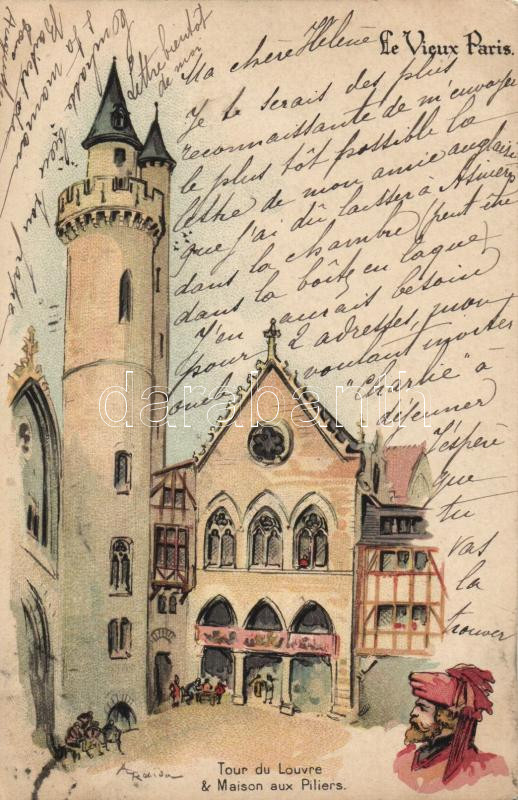 Le Vieux Paris.
Ma chère Hélène
Je te serais des plus
reconnaissante de m'envoyer
le plus tôt possible la
lettre de mon amie anglaise
que j'ai dû laisser à Asnières
dans la chambre (peut être
dans la boîte en laque)
J'en aurais besoin
pour 2 adresses, mon
oncle voulant inviter
"Charlie" à
déjeuner
J'espère
que
tu
vas
la
trouver
Lettre bientôt
de moi
Embrasse
ta maman
darabanth
Tour du Louvre
& Maison aux Piliers.